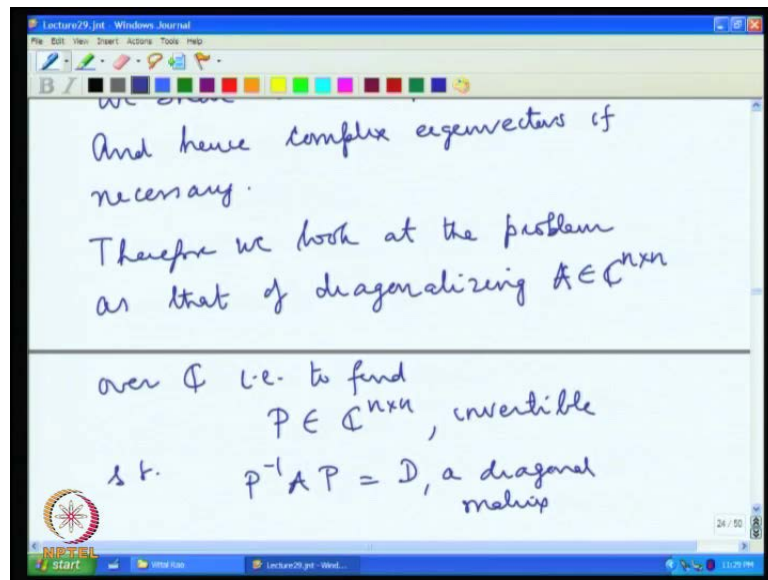 Lecture29.jnt - Windows Journal
File Edit View Insert Actions Tools Help
B I
And hence complex eigenvectors if
necessary.
Therefore we look at the problem
as that of diagonalizing A ∈ ℂ^{n×n}
over ℂ i.e. to find
P ∈ ℂ^{n×n}, invertible
s.t. P^{-1} A P = D, a diagonal
matrix
24 / 50
NPTEL
start Vittal Rao Lecture29.jnt - Wind... 11:29 PM